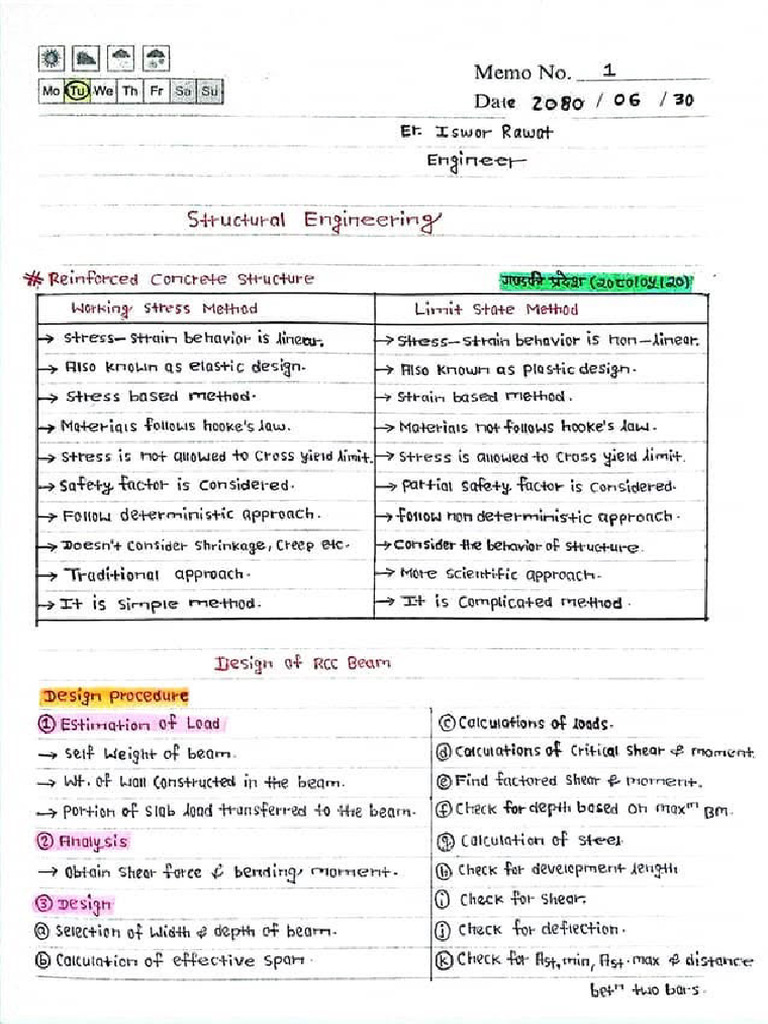 Mo Tu We Th Fr Sa Su
Memo No. 1
Date 2080 / 06 / 30
Er. Iswor Rawat
Engineer
Structural Engineering
# Reinforced Concrete Structure
गण्डकी प्रदेश (2080/04/20)
Working Stress Method
→ Stress-Strain behavior is linear.
→ Also known as elastic design.
→ Stress based method.
→ Materials follows hooke's law.
→ Stress is not allowed to cross yield limit.
→ Safety factor is considered.
→ Follow deterministic approach.
→ Doesn't consider shrinkage, creep etc.
→ Traditional approach.
→ It is simple method.
Limit State Method
→ Stress-Strain behavior is non-linear.
→ Also known as plastic design.
→ Strain based method.
→ Materials not follows hooke's law.
→ Stress is allowed to cross yield limit.
→ Partial safety factor is considered.
→ follow non deterministic approach.
→ Consider the behavior of structure.
→ More scientific approach.
→ It is complicated method.
Design of RCC Beam
Design procedure
① Estimation of Load
→ Self Weight of beam.
→ Wt. of wall constructed in the beam.
→ Portion of slab load transferred to the beam.
② Analysis
→ Obtain shear force & bending moment.
③ Design
ⓐ Selection of width & depth of beam.
ⓑ Calculation of effective span.
ⓒ Calculations of loads.
ⓓ Calculations of critical shear & moment.
ⓔ Find factored shear & moment.
ⓕ Check for depth based on maxᵐ BM.
ⓖ Calculation of steel
ⓗ Check for development length
ⓘ Check for shear.
ⓙ Check for deflection.
ⓚ Check for Ast,min, Ast.max & distance
betⁿ two bars.